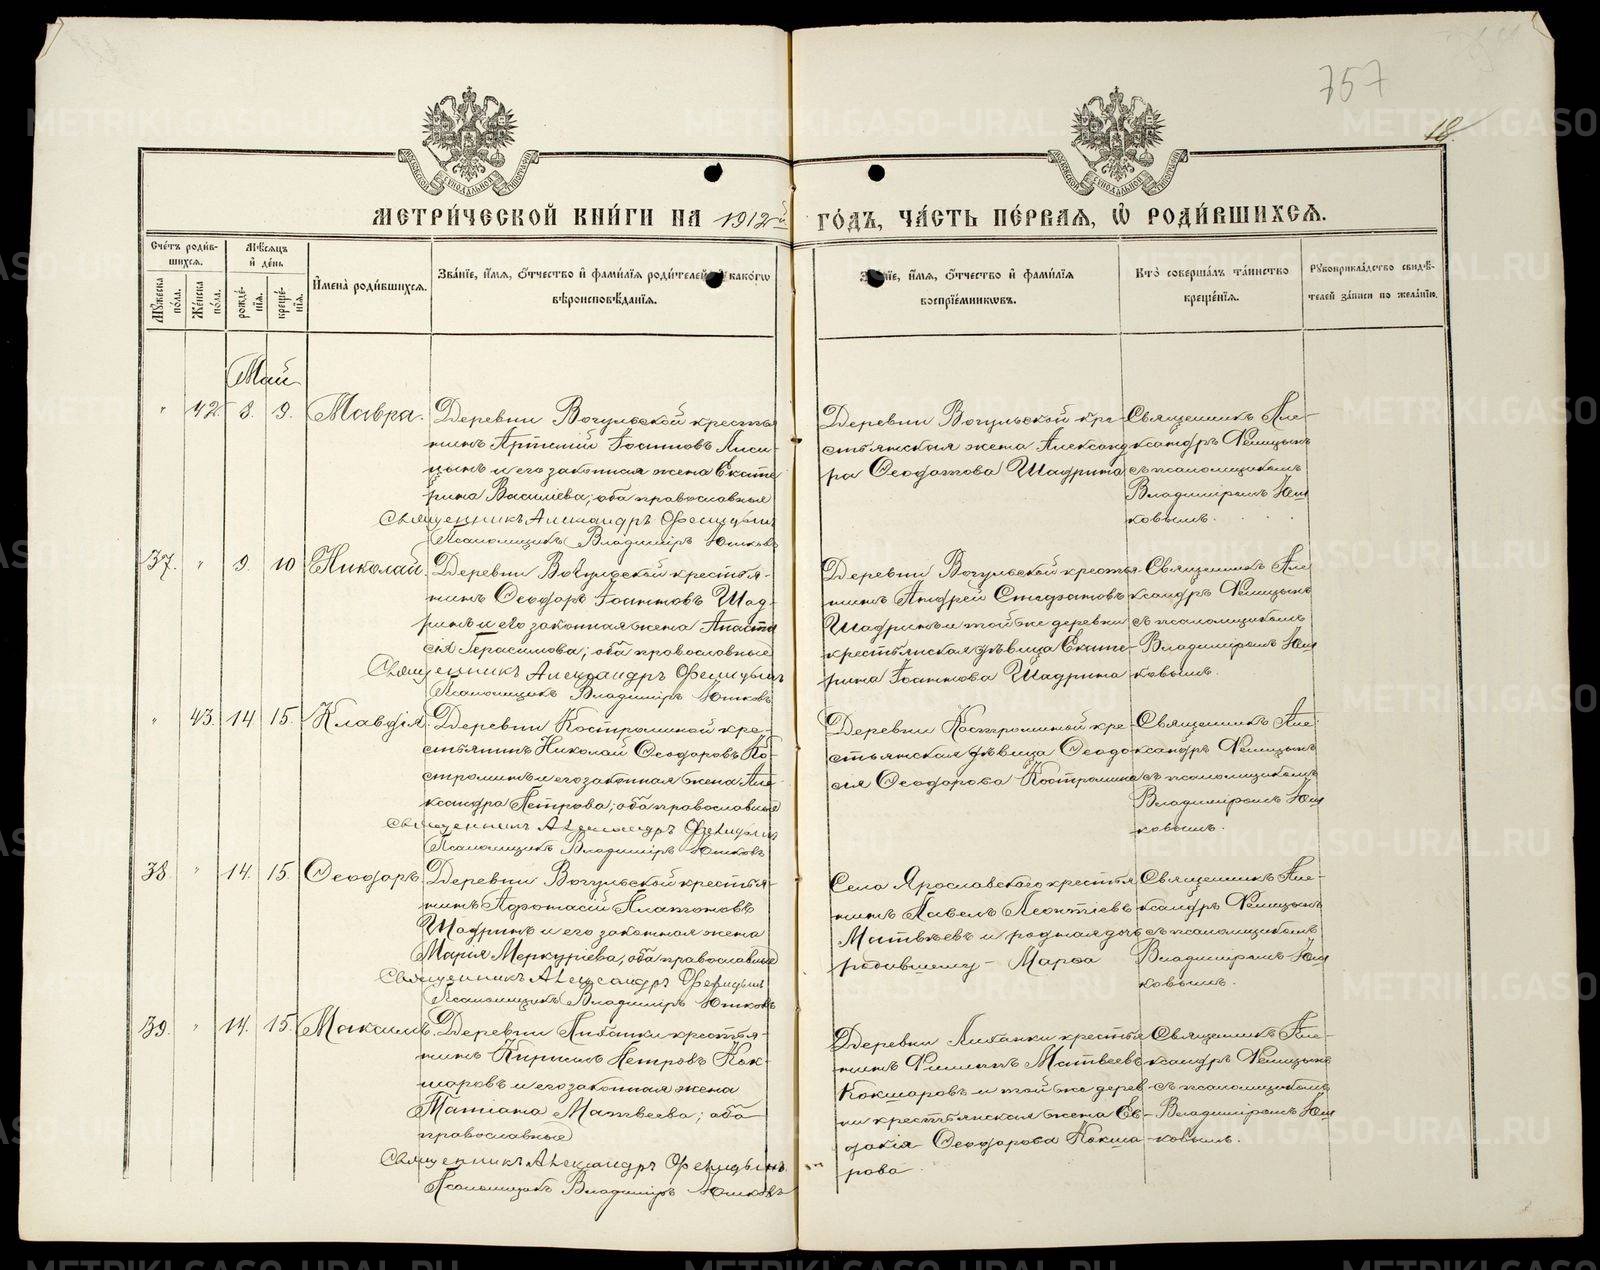 757
18
МЕТРИ́ЧЕСКОЙ КНИ́ГИ НА 1912й
ГО́ДЪ, ЧА́СТЬ ПЕ́РВАЯ, Ѡ҆ РОДИ́ВШИХСЯ.
Сче́тъ роди́в-
шихся.
Му́жеска по́ла.
Же́нска по́ла.
Мѣ́сяцъ
и҆ де́нь
рожде́-
нїя.
креще́-
нїя.
И҆мена̀ роди́вшихся.
Зва́нїе, и҆́мя, ѻ҆́тчество и҆ фами́лїя роди́телей и҆ како́гѡ
вѣроисповѣ́данїя.
Зва́нїе, и҆́мя, ѻ҆́тчество и҆ фами́лїя
воспрїе́мникѡвъ.
Кто̀ соверша́лъ та́инство
креще́нїя.
Рꙋкоприкла́дство свидѣ́-
телей за́писи по жела́нїю.
Май
" 42. 8. 9. Мавра.
Деревни Вогульской крестья
нинъ Артемій Іоанновъ Лиси-
цынъ и его законная жена Екате
рина Василіева, оба православные
Священникъ Александръ Ѳелицынъ
Псаломщикъ Владиміръ Юшковъ
Деревни Вогульской кре-
стьянская жена Александ
ра Ѳеодотова Шадрина
Священникъ Але-
ксандръ Ѳелицынъ
съ псаломщикомъ
Владиміромъ Юш
ковымъ.
37. " 9. 10 Николай.
Деревни Вогульской крестья-
нинъ Ѳеодоръ Іоанновъ Шад-
ринъ и его законная жена Анаста
сія Герасимова, оба православные
Священникъ Александръ Ѳелицынъ
Псаломщикъ Владиміръ Юшковъ
Деревни Вогульской крестья-
нинъ Андрей Стефановъ
Шадринъ и той же деревни
крестьянская дѣвица Екате-
рина Іоаннова Шадрина
Священникъ Але
ксандръ Ѳелицынъ
съ псаломщикомъ
Владиміромъ Юш
ковымъ.
" 43. 14 15. Клавдія.
Деревни Костроминой кре-
стьянинъ Николай Ѳеодоровъ Ко-
строминъ и его законная жена Але-
ксандра Петрова; оба православные
Священникъ Александръ Ѳелицынъ
Псаломщикъ Владиміръ Юшковъ
Деревни Костроминой кре-
стьянская дѣвица Ѳеодо
сія Ѳеодорова Костромина
Священникъ Але-
ксандръ Ѳелицынъ
съ псаломщикомъ
Владиміромъ Юш
ковымъ.
38. " 14. 15. Ѳеодоръ
Деревни Вогульской крестья-
нинъ Афонасій Платоновъ
Шадринъ и его законная жена
Марія Меркуріева, оба православные
Священникъ Александръ Ѳелицынъ
Псаломщикъ Владиміръ Юшковъ
Села Ярославскаго крестья
нинъ Павелъ Леонтіевъ
Матвѣевъ и родная дочь
родившему Марѳа
Священникъ Але-
ксандръ Ѳелицынъ
съ псаломщикомъ
Владиміромъ Юш
ковымъ.
39. " 14. 15. Максимъ
Деревни крестья-
нинъ Кирилъ Петровъ Кок-
шаровъ и его законная жена
Татіана Матвеева; оба
православные
Священникъ Александръ Ѳелицынъ
Псаломщикъ Владиміръ Юшковъ
Деревни крестья
нинъ Филипъ Матвеевъ
Кокшаровъ и той же дерев
ни крестьянская жена Ев-
докія Ѳеодорова Кокша
рова
Священникъ Але-
ксандръ Ѳелицынъ
съ псаломщикомъ
Владиміромъ Юш
ковымъ.
METRIKI.GASO-URAL.RU